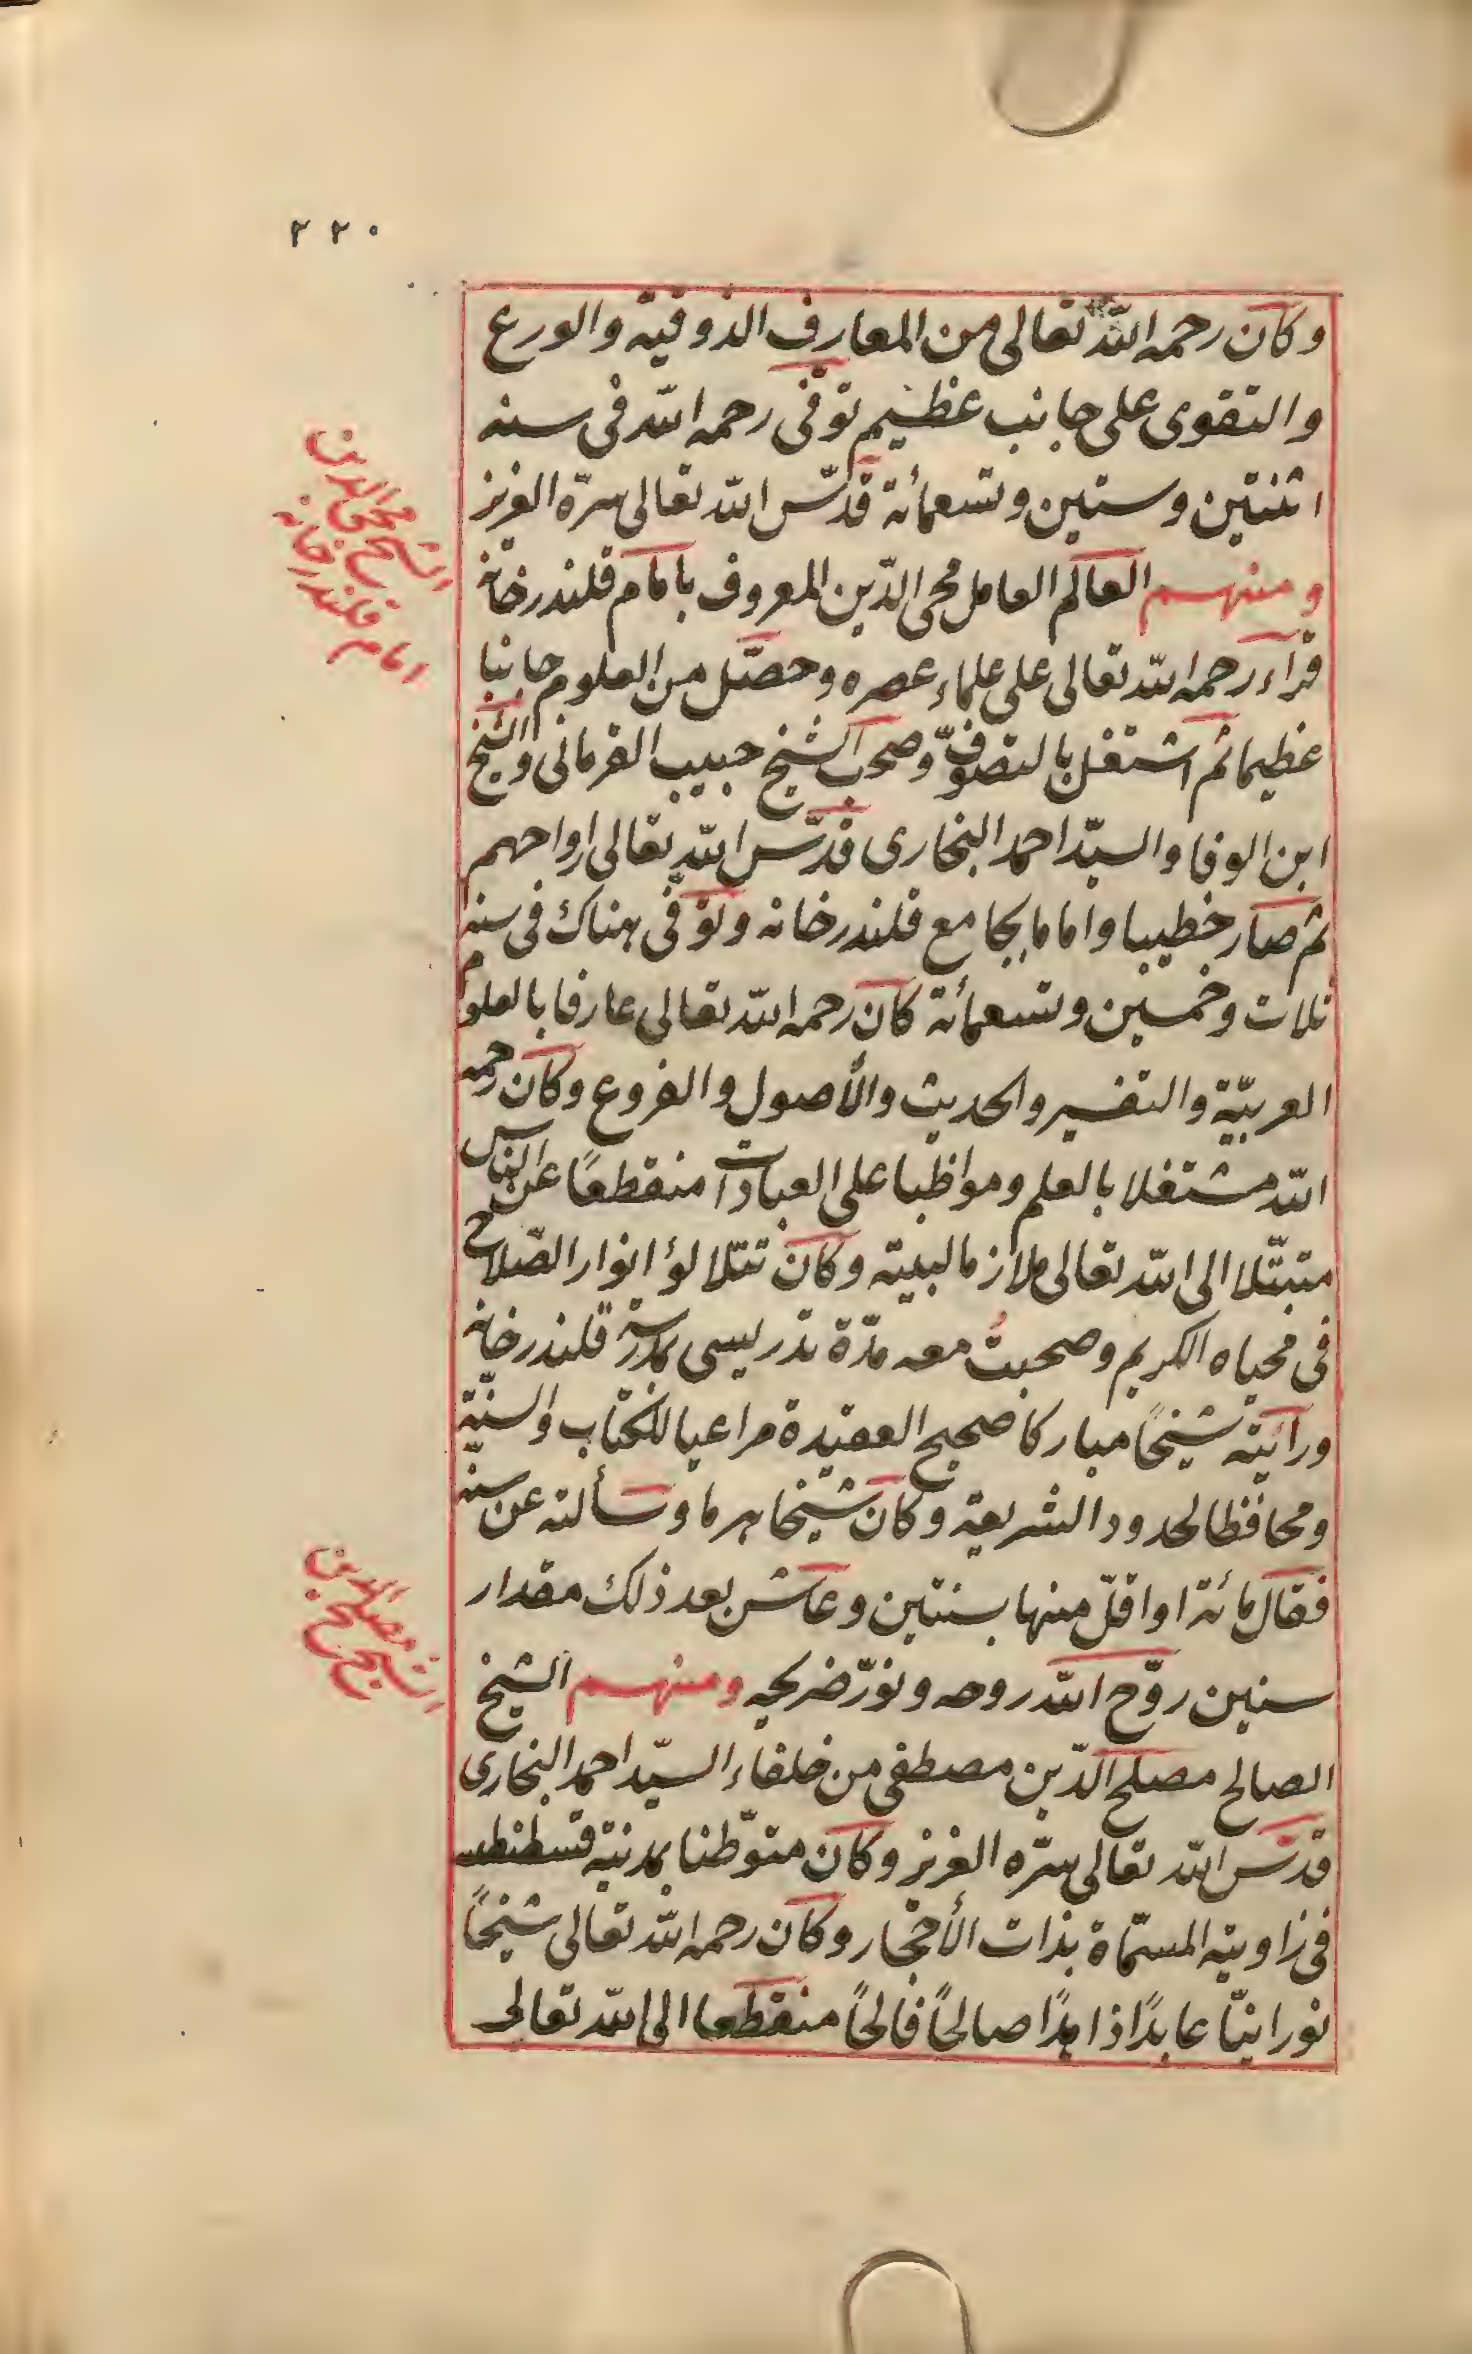 ٢٢٠
وكان رحمه الله تعالى من المعارف الذوقية والورع
والتقوى على جانب عظيم توفى رحمه الله فى سنه
اثنتين وستين وتسعمأئة قدّس الله تعالى سرّه العزيز
ومنهم العالم العامل محى الدّين المعروف بامام قلندرخانه
قرأء رحمه الله تعالى على علماء عصره وحصّل من العلوم جانبا
عظيما ثم اشتغل بالتصوّف وصحب الشيخ حبيب القرمانى والشيخ
ابن الوفا والسيّد احمد البخارى قدّس الله تعالى ارواحهم
ثم صار خطيبا واماما بجامع قلندرخانه وتوفّى هناك فى سنه
ثلاث وخمسين وتسعمأئة كان رحمه الله تعالى عارفا بالعلوم
العربيّة والتفسير والحديث والأصول والفروع وكان رحمه
الله مشتغلا بالعلم ومواظبا على العبادات منقطعًا عن الناس
متبتّلا الى الله تعالى ملازما لبيته وكان تتلالؤ انوار الصّلاح
فى محياه الكريم وصحبتُ معه مدّة تدريسى بمدرسة قلندرخانه
ورأيته شيخًا مباركا صحيح العقيدة مراعيا للكتاب والسنّة
ومحافظا لحدود الشريعة وكان شيخا هرما وسألته عن سنه
فقال مائة او اقلّ منها بسنتين وعاش بعد ذلك مقدار
سنين روّح الله روحه ونوّر ضريحه ومنهم الشيخ
الصالح مصلح الدّين مصطفى من خلفاء السيّد احمد البخارى
قدّس الله تعالى سرّه العزيز وكان متوّطنا بمدنية
فى زاويته المسمّاة بذات الأحجار وكان رحمه الله تعالى شيخًا
نورانيّا عابدًا ذاهدًا صالحًا فالحًا منقطعا الى الله تعالى
الشيخ محى الدين
امام قلندرخانه
الشيخ مصلح الدين